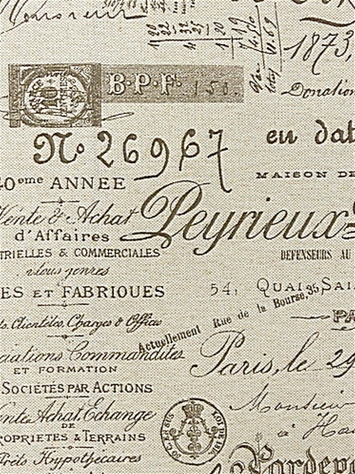 Monsieur
1873,
B·P·F· 150.
Donation
No. 26967
en dat
40eme ANNEE
MAISON DE
Vente & Achat
d'Affaires
Peyrieux
TRIELLES & COMMERCIALES
DEFENSEURS AU
tous genres
ES ET FABRIQUES
54, QUAI SAIN
ts, Clientèles, Charges & Offices
Actuellement Rue de la Bourse, 35
PA
ociations Commandites
ET FORMATION
Paris, le 29
SOCIÉTÉS PAR ACTIONS
Vente Achat Echange
DE
Monsieur
PROPRIETES & TERRAINS
Prêts Hypothécaires